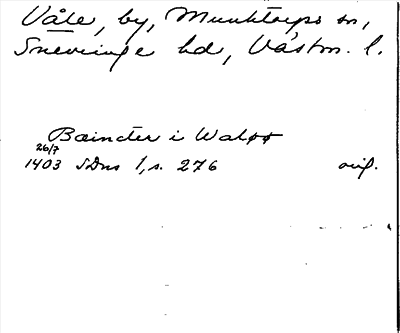 Våle, by, Munktorps sn,
Snevinge hd, Västm. l.
Bæncter i Waløø
26/7
1403 SDns 1, s. 276 orig.